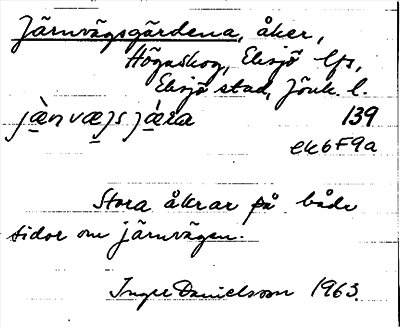 Järnvägsgärdena, åker,
Högaskog, Eksjö lfs,
Eksjö stad, Jönk. l.
jæ̀nvæjsjæ̀ra 139
ek6F9a
Stora åkrar på både
sidor om järnvägen.
Inger Danielsson 1963.